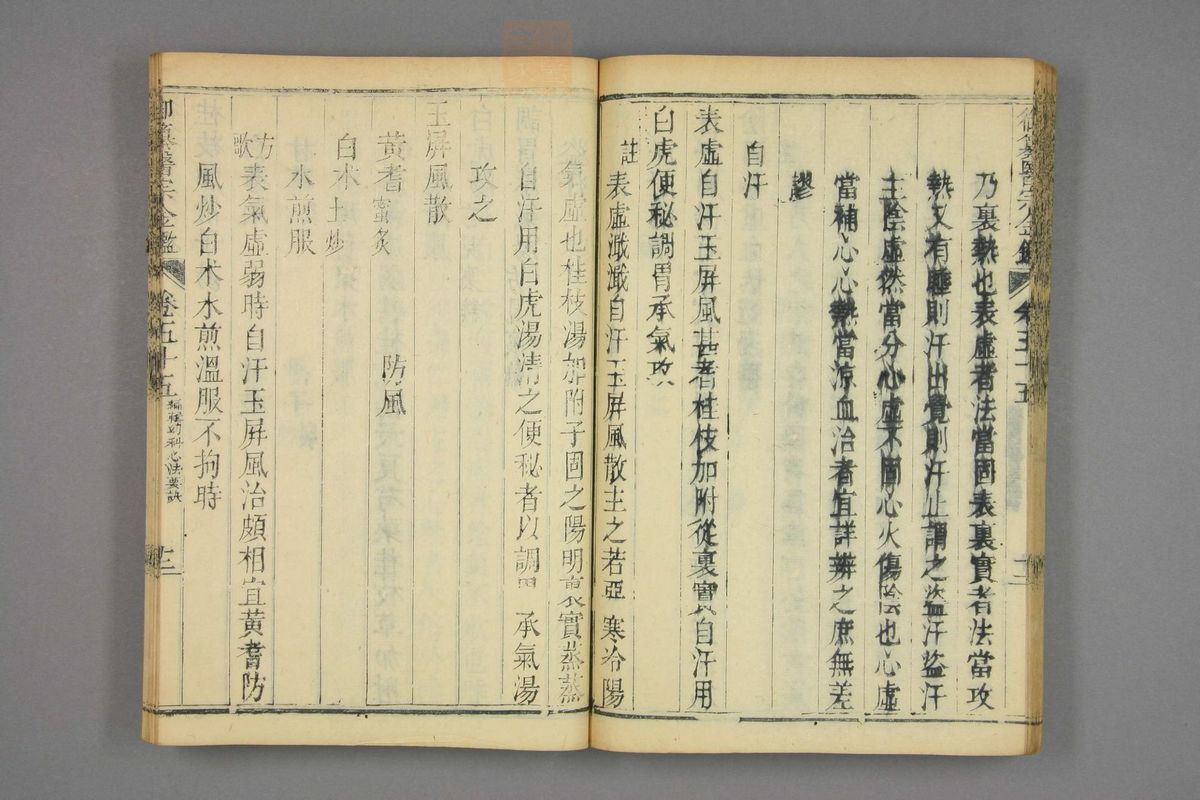 乃裏熱也表虛者法當固表裏實者法當攻
熱又有睡則汗出覺則汗止謂之盜汗盜汗
主陰虛然當分心虛不固心火傷陰也心虛
當補心心熱當涼血治者宜詳辨之庶無差
謬
自汗
表虛自汗玉屏風甚者桂枝加附從裏實自汗用
白虎便秘調胃承氣攻
註表虛濈濈自汗玉屏風散主之若亞寒冷陽
虛也桂枝湯加附子固之陽明裏實蒸蒸
自汗用白虎湯清之便秘者以調胃承氣湯
攻之
玉屏風散
黃耆蜜炙 防風
白朮土炒
水煎服
方歌表氣虛弱時自汗玉屏風治頗相宜黃耆防
風炒白朮水煎溫服不拘時
御纂醫宗金鑑 卷五十五 編輯幼科心法要訣 十二